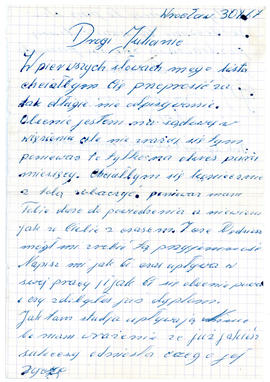 Wrocław 30
Drogi Julianie
W pierwszych słowach mego listu
chciałbym Cię przeprosić za
tak długie nie odpisywanie.
Obecnie jestem na sądowej w
więzieniu ale nie zrażaj się tym
ponieważ to tylko na okres paru
miesięcy. Chciałbym się koniecznie
z tobą zobaczyć ponieważ mam
Tobie dużo do powiedzenia a nie wiem
jak u Ciebie z czasem. I czy będziesz
mógł mi zrobić tą przyjemność
Napisz mi jak ci czas upływa w
swej pracy i jak ci się obecnie
i czy zdobyłeś już dyplom.
Jak tam studia upływają
bo mam wrażenie że już jakieś
sukcesy odniosła czego jej
życzę